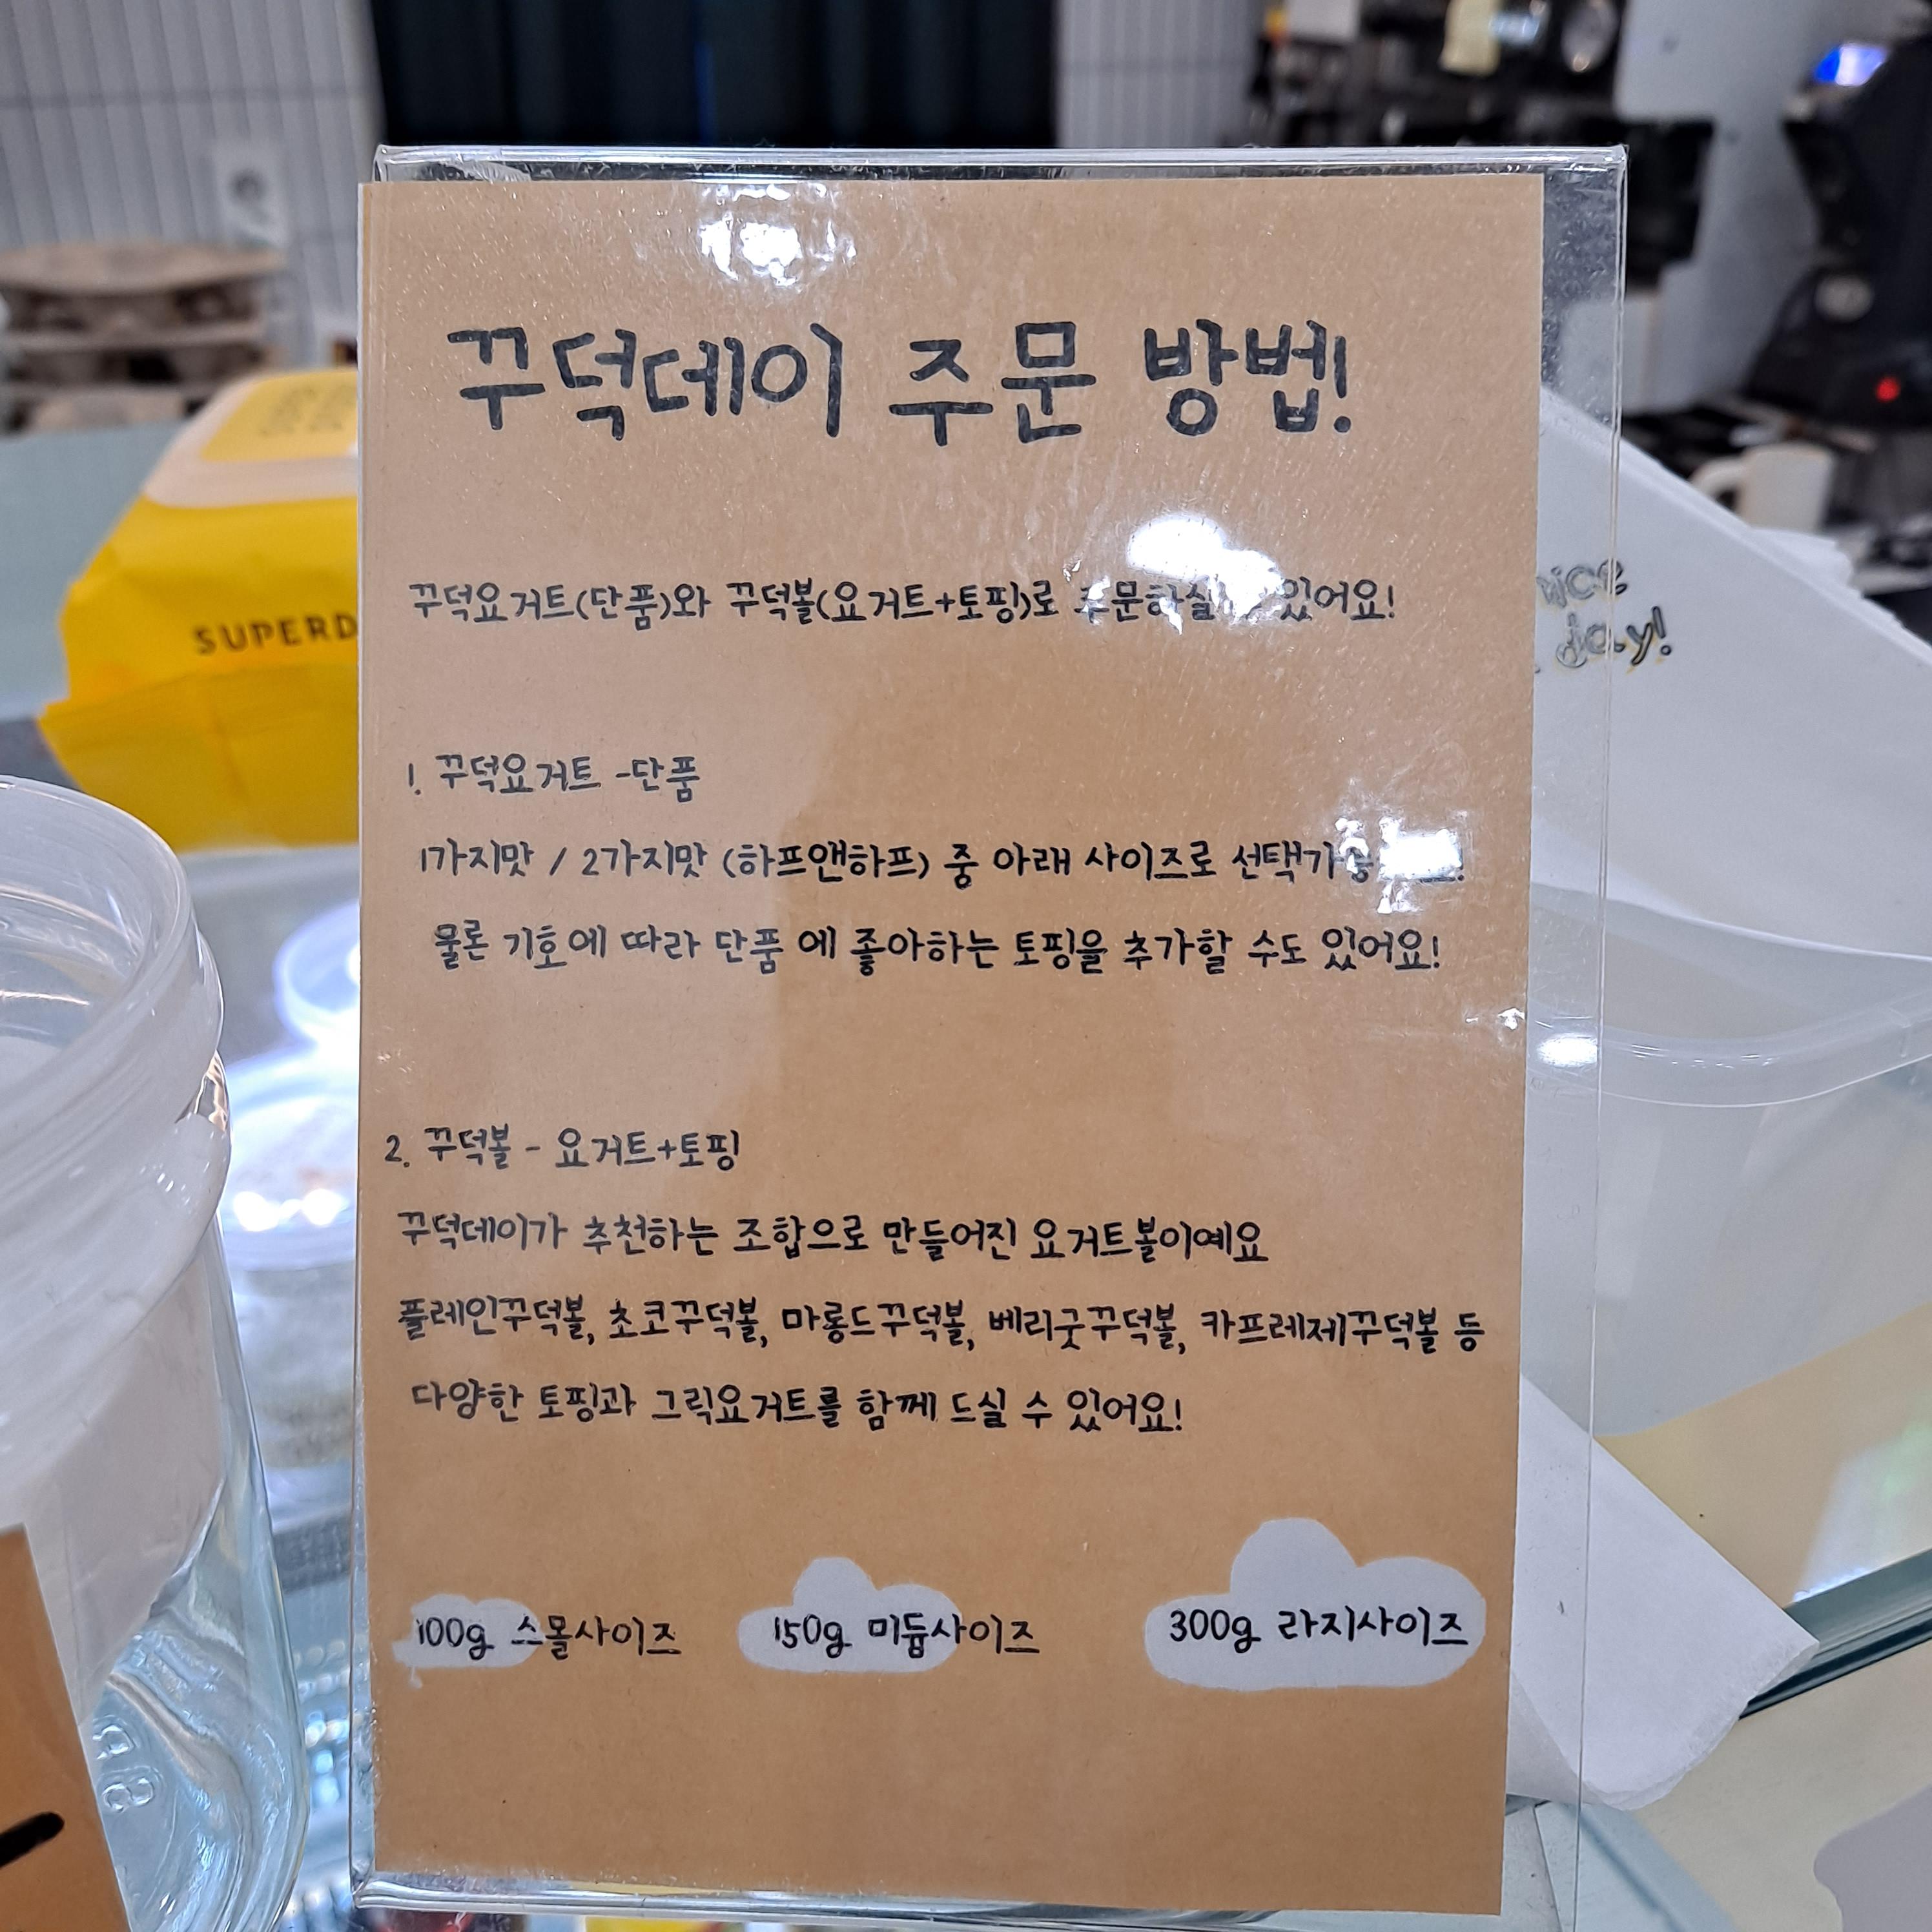 꾸덕데이 주문 방법!
꾸덕요거트(단품)와 꾸덕볼(요거트+토핑)로 주문하실 있어요!
1. 꾸덕요거트 -단품
1가지맛 / 2가지맛 (하프앤하프) 중 아래 사이즈로
물론 기호에 따라 단품 에 좋아하는 토핑을 추가할 수도 있어요!
2. 꾸덕볼 - 요거트+토핑
꾸덕데이가 추천하는 조합으로 만들어진 요거트볼이예요
플레인꾸덕볼, 초코꾸덕볼, 마롱드꾸덕볼, 베리굿꾸덕볼, 카프레제꾸덕볼 등
다양한 토핑과 그릭요거트를 함께 드실 수 있어요!
100g 스몰사이즈
150g 미듐사이즈
300g 라지사이즈
day!